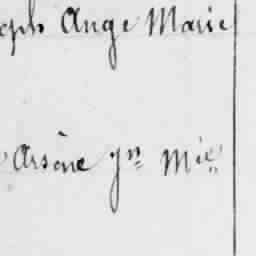 eph Ange Marie
Arsène Jn Mie